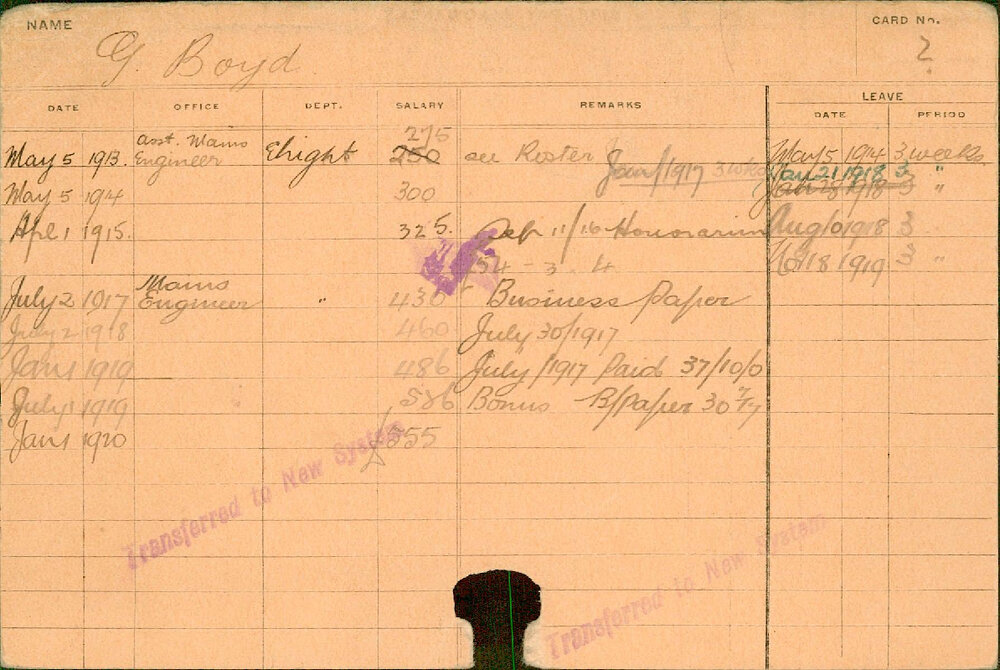 NAME
CARD No.
G. Boyd
?
DATE OFFICE DEPT. SALARY REMARKS LEAVE
DATE PERIOD
May 5 1913. Asst. Mains Engineer Elright 250 275 see Roster Jan 1/1917 3 wks May 5 1914 3 weeks
May 21 1918 3 "
May 5 1914 300 Jan 28 1918 3 "
Apl 1 1915. 325. Sep 11/16 Honorarium Aug 10 1918 3 "
£54 - 3 . 4 1919 3 "
July 2 1917 Mains Engineer " 430 Business Paper
July 2 1918 460 July 30/1917
Jan 1 1919 486 July /1917 Paid 37/10/0
July 1 1919 " 586 Bonus B/Paper 30/7/17
Jan 1 1920 £555
Transferred to New System
Transferred to New System